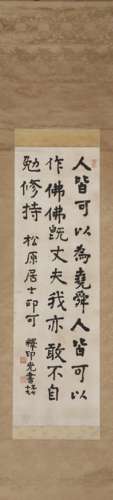 人皆可以為堯舜人皆可以
作佛佛既丈夫我亦敢不自
勉修持 松原居士印可
釋印光書